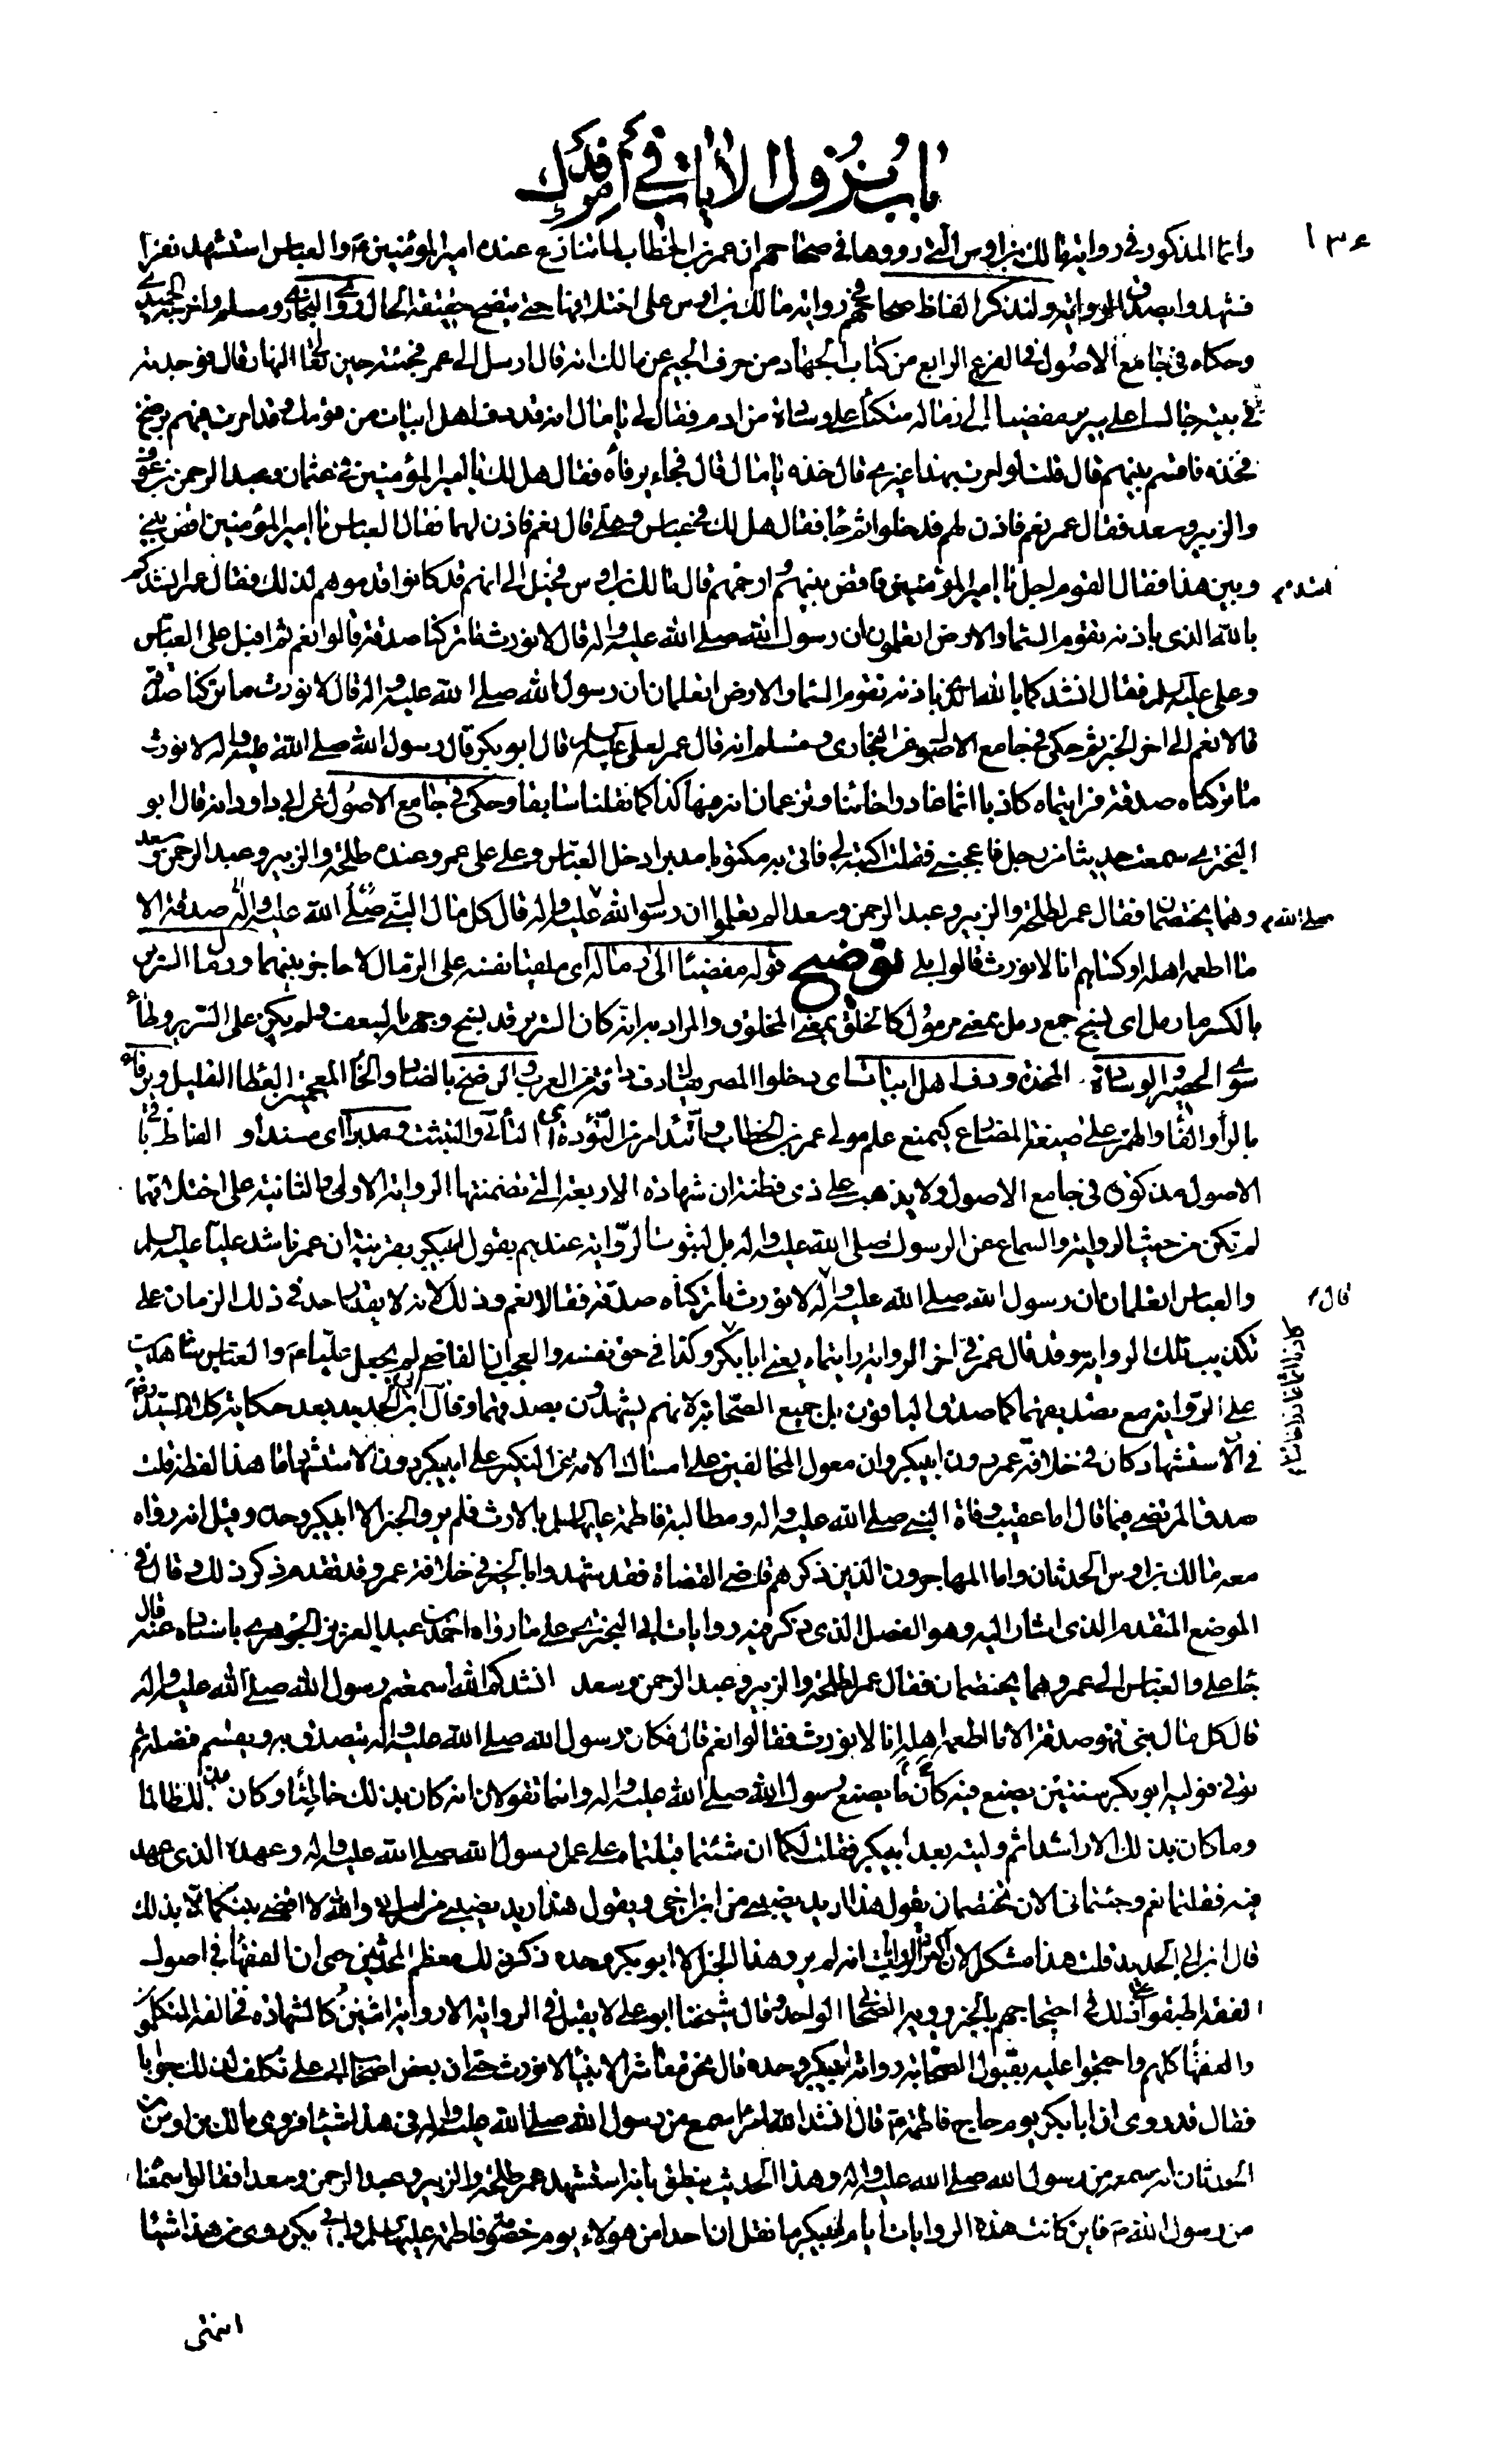 باب نزول الآيات في أمر فدك
١٣٤
وانما المذكور في رواية مالك بن اوس التي رووها في صحاحهم ان عمر بن الخطاب لما تنازع عنده امير المؤمنين ع والعباس استشهد نفرا
فشهدوا بصدق الرواية ولنذكر الفاظ صحاحهم في رواية مالك بن اوس على اختلافها حتى يتضح حقيقة الحال روى البخاري ومسلم واخرجه الحميدي
وحكاه في جامع الاصول في الفرع الرابع من كتاب الجهاد من حرف الجيم عن مالك انه قال ارسل الي عمر فجئته حين تعالى النهار قال فوجدته
في بيته جالسا على سرير مفضيا الى رماله متكئا على وسادة من ادم فقال لي يا مال انه قد دف اهل ابيات من قومك وقد امرت فيهم برضخ
فخذه فاقسم بينهم قال قلت لو امرت بهذا غيري قال خذه يا مال قال فجاء يرفأ فقال هل لك يا امير المؤمنين في عثمان وعبد الرحمن بن عوف
والزبير وسعد فقال عمر نعم فاذن لهم فدخلوا ثم جاء فقال هل لك في عباس وعلي قال نعم فاذن لهما فقال العباس يا امير المؤمنين اقض بيني
وبين هذا فقال القوم اجل يا امير المؤمنين فاقض بينهم وارحهم قال مالك بن اوس فخيل الي انهم قد كانوا قدموهم لذلك فقال عمر انشدكم
اتئد م
بالله الذي باذنه تقوم السماء والارض اتعلمون ان رسول الله صلى الله عليه واله قال لا نورث ما تركنا صدقة قالوا نعم ثم اقبل على العباس
وعلي عليه السلم فقال انشدكما بالله الذي باذنه تقوم السماء والارض اتعلمان ان رسول الله صلى الله عليه واله قال لا نورث ما تركنا صدقة
قالا نعم الى اخر الخبر ثم حكى في جامع الاصول عن البخاري ومسلم انه قال عمر لعلي عليه السلم قال ابو بكر قال رسول الله صلى الله عليه واله لا نورث
ما تركناه صدقة فرايتماه كاذبا اثما غادرا خائنا وتزعمان انه فيها كذا كما نقلنا سابقا وحكى في جامع الاصول عن ابي داود انه قال ابو
البختري سمعت حديثا من رجل فاعجبني فقلت اكتبه لي فاتى به مكتوبا مذبرا دخل العباس وعلي على عمر وعنده طلحة والزبير وعبد الرحمن وسعد
وهما يختصمان فقال عمر لطلحة والزبير وعبد الرحمن وسعد الم تعلموا ان رسول الله عليه واله قال كل مال النبي صلى الله عليه واله صدقة الا
صلى الله م
ما اطعمه اهله او كساهم انا لا نورث قالوا بلى توضيح قوله مفضيا الى رماله اي ملقيا نفسه على الرمال لا حاجز بينهما ورمال السرير
بالكسر ما رمل اي ينسج جمع رمل بمعنى مرمول كالخلق بمعنى المخلوق والمراد به انه كان السرير قد ينسج وجهه بالسعف ولم يكن على السرير وطاء
سوى الحصير والوسادة المخدة ودف اهل ابيات اي دخلوا المصر يقال دف دافة من العرب والرضخ بالضاد والخاء المعجمتين العطاء القليل ويرفأ
بالراء والفاء والهمزة على صيغة المضارع كيمنع علم مولى عمر بن الخطاب واتئد امر من التؤدة اي التأني والتثبت ومذبرا اي مسندا والفاظ باقي
الاصول مذكورة في جامع الاصول ولا يذهب على ذي فطنة ان شهادة الاربعة التي تضمنتها الرواية الاولى والثانية على اختلافهما
لم تكن من حيث الرواية والسماع عن الرسول صلى الله عليه واله بل لثبوت الرواية عندهم بقول ابي بكر بقرينة ان عمر ناشد عليا عليه السلم
والعباس اتعلمان ان رسول الله صلى الله عليه واله لا نورث ما تركناه صدقة فقالا نعم وذلك لانه لا يقدر احد في ذلك الزمان على
قال م
تكذيب تلك الرواية وقد قال عمر في اخر الرواية رايتماه يعني ابا بكر وكذا في حق نفسه والعجب ان القاضي لم يجعل عليا ع والعباس شاهدين
كاذبا اثما غادرا خائنا م
على الرواية مع تصديقهما كما صدق الباقون بل جميع الصحابة لانهم يشهدون بصدقهما وقال ابن ابي الحديد بعد حكاية كلام السيد رضي
في ان الاستشهاد كان في خلافة عمر دون ابي بكر وان معول المخالفين على امساك الامة عن النكير على ابي بكر دون الاستشهاد ما هذا لفظه قلت
صدق المرتضى فيما قال اما عقيب وفاة النبي صلى الله عليه واله ومطالبة فاطمة عليها السلم بالارث فلم يرو الخبر الا ابو بكر وحده وقيل انه رواه
معه مالك بن اوس الحدثان واما المهاجرون الذين ذكرهم قاضي القضاة فقد شهدوا بالخبر في خلافة عمر وقد تقدم ذكر ذلك وقال في
الموضع المتقدم الذي اشار اليه وهو الفصل الذي ذكر فيه روايات ابي البختري على ما رواه احمد بن عبد العزيز الجوهري باسناده عنه قال
جاء علي والعباس الى عمر وهما يختصمان فقال عمر لطلحة والزبير وعبد الرحمن وسعد انشدكم الله اسمعتم رسول الله صلى الله عليه واله
قال كل مال نبي فهو صدقة الا ما اطعمه اهله انا لا نورث فقالوا نعم قال فكان رسول الله صلى الله عليه واله يتصدق به ويقسم فضله ثم
توفي فوليه ابو بكر سنتين يصنع فيه كما كان يصنع رسول الله صلى الله عليه واله وانتما تقولان انه كان بذلك خاطئا وكان بذلك ظالما
وما كان بذلك الا راشدا ثم وليته بعد ابي بكر فقلت لكما ان شئتما قبلتماه على عمل رسول الله صلى الله عليه واله وعهده الذي عهد
فيه فقلتما نعم وجئتماني الان تختصمان يقول هذا اريد نصيبي من ابن اخي ويقول هذا اريد نصيبي من امراتي والله لا اقضي بينكما الا بذلك
قال ابن ابي الحديد قلت هذا مشكل لان اكثر الروايات انه لم يرو هذا الخبر الا ابو بكر وحده ذكر ذلك معظم المحدثين حتى ان الفقهاء في اصول
الفقه اطبقوا على ذلك في احتجاجهم بالخبر يرويه الصحابي الواحد وقال شيخنا ابو علي لا يقبل في الرواية الا رواية اثنين كالشهادة فخالفه المتكلمون
والفقهاء كلهم واحتجوا عليه بقبول الصحابة رواية ابي بكر وحده قال نحن معاشر الانبياء لا نورث حتى ان بعض اصحاب ابي علي تكلف لذلك جوابا
فقال قد روي ان ابا بكر يوم حاج فاطمة ع قال انشد الله امرأ سمع من رسول الله صلى الله عليه واله في هذا شيئا فروى مالك بن اوس بن
الحدثان انه سمعه من رسول الله صلى الله عليه واله وهذا الحديث ينطق بانه استشهد عمر طلحة والزبير وعبد الرحمن وسعدا فقالوا سمعنا
من رسول الله ص فاين كانت هذه الروايات ايام ابي بكر ما نقل ان احدا من هؤلاء يوم خصومة فاطمة عليها السلم وابي بكر روى من هذا شيئا
انتهى